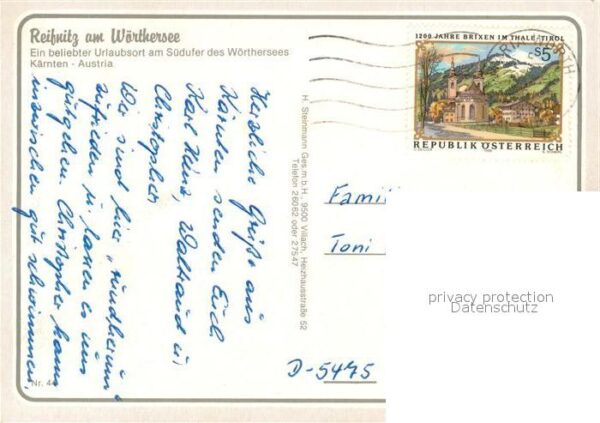 Reifnitz am Wörthersee
Ein beliebter Urlaubsort am Südufer des Wörthersees
Kärnten - Austria
Herzliche Grüße aus
Kärnten senden Euch
Karl Heinz, Waltraud u.
Christopher
Wir sind hier „rundherum"
zufrieden u. lassen es uns
gutgehen. Christopher kann
inzwischen gut schwimmen.
Nr. 44
H. Steinmann Ges.m.b.H., 9500 Villach, Heizhausstraße 52
Telefon 26062 oder 27547
1200 JAHRE BRIXEN IM THALE-TIROL
S5
REPUBLIK ÖSTERREICH
Famil
Toni
D-5475
privacy protection
Datenschutz